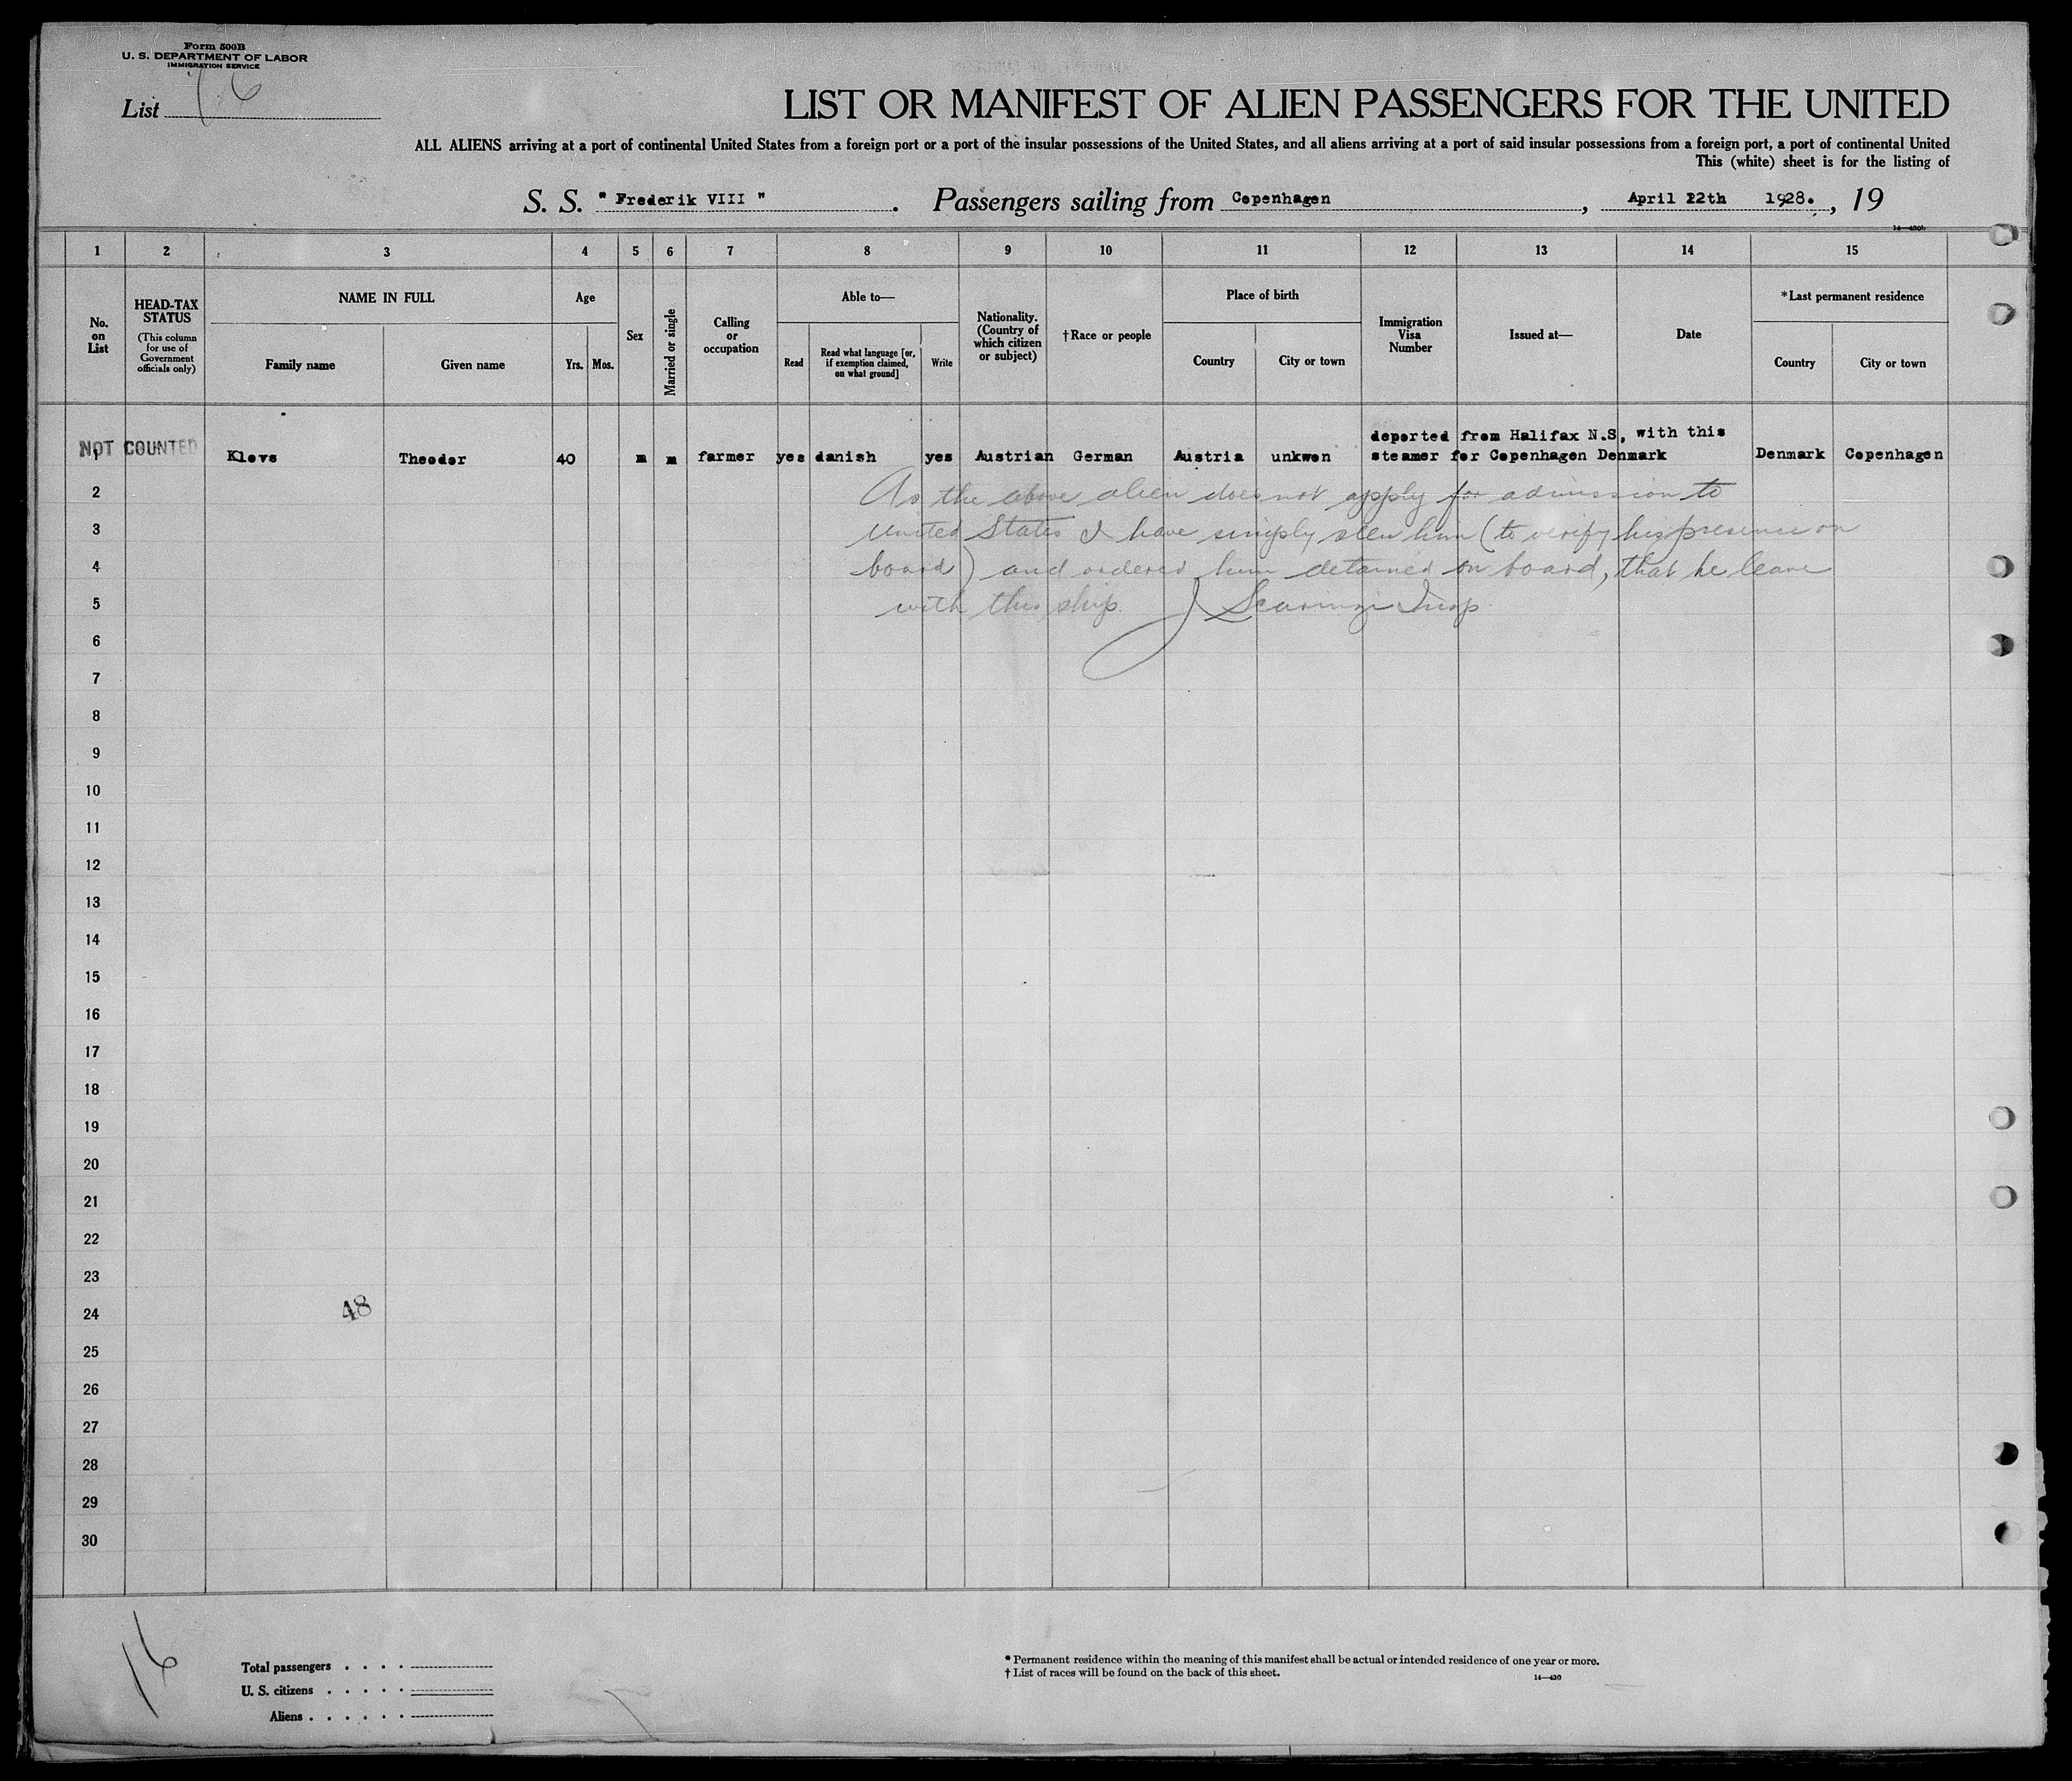 Form 500B
U. S. DEPARTMENT OF LABOR
IMMIGRATION SERVICE
List 16
LIST OR MANIFEST OF ALIEN PASSENGERS FOR THE UNITED
ALL ALIENS arriving at a port of continental United States from a foreign port or a port of the insular possessions of the United States, and all aliens arriving at a port of said insular possessions from a foreign port, a port of continental United
This (white) sheet is for the listing of
S. S. " Frederik VIII " . Passengers sailing from Copenhagen , April 22th 1928. , 19
14—430b
1 2 3 4 5 6 7 8 9 10 11 12 13 14 15
No. on List
HEAD-TAX STATUS
(This column for use of Government officials only)
NAME IN FULL
Family name Given name
Age
Yrs. Mos.
Sex
Married or single
Calling or occupation
Able to—
Read
Read what language [or, if exemption claimed, on what ground]
Write
Nationality. (Country of which citizen or subject)
†Race or people
Place of birth
Country City or town
Immigration Visa Number
Issued at—
Date
*Last permanent residence
Country City or town
NOT COUNTED
deported from Halifax N.S, with this
1 Klevs Theodor 40 m m farmer yes danish yes Austrian German Austria unkwon steamer for Copenhagen Denmark Denmark Copenhagen
2 As the above alien does not apply for admission to
3 United States I have simply seen him (to verify his presence on
4 board) and ordered him detained on board, that he leave
5 with this ship. J Scaringi Insp.
6
7
8
9
10
11
12
13
14
15
16
17
18
19
20
21
22
23
24 48
25
26
27
28
29
30
16
Total passengers . . . .
U. S. citizens . . . . .
Aliens . . . . . .
* Permanent residence within the meaning of this manifest shall be actual or intended residence of one year or more.
† List of races will be found on the back of this sheet.
14—430